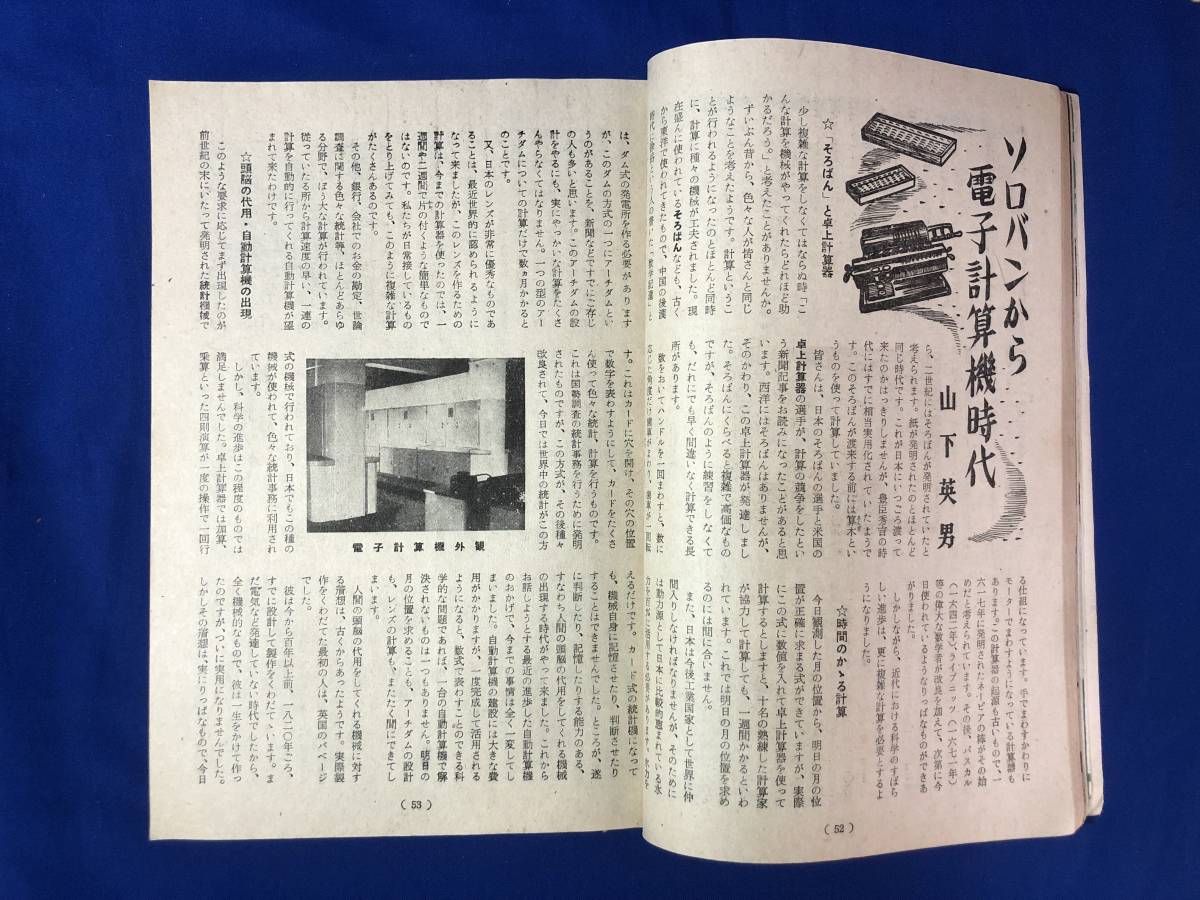 ソロバンから
電子計算機時代
山下英男
☆「そろばん」と卓上計算器
少し複雑な計算をしなくてはならぬ時「こ
んな計算を機械がやってくれたらどれほど助
かるだろう。」と考えたことがありませんか。
ずいぶん昔から、色々な人が皆さんと同じ
ようなことを考えたようです。計算というこ
とが行われるようになったのとほとんど同時
に、計算に種々の機械が工夫されました。現
在盛んに使われてるそろばんなども、古く
から東洋で使われてきたもので、中国の後漢
ら、二世紀にはそろばんが発明されていたと
考えられます。紙が発明されたのとほとんど
同じ時代です。これが日本にいつごろ渡って
来たのかはっきりしませんが、豊臣秀吉の時
代にはすでに相当実用化されていたようで
す。このそろばんが渡来する前には算木とい
うものを使って計算していました。
皆さんは、日本のそろばんの選手と米国の
卓上計算器の選手が、計算の競争をしたとい
う新聞記事をお読みになったことがあると思
います。西洋にはそろばんはありませんが、
そのかわり、この卓上計算器が発達しまし
た。そろばんにくらべると複雑で高価なもの
ですが、そろばんのように練習をしなくて
も、だれにでも早く間違いなく計算できる長
所があります。
数をおいてハンドルを一回まわすと、数に
る仕組になっています。手でまわすかわりに
モーターでまわすようになっている計算器も
あります。この計算器の起源も古いもので、一
六一七年に発明されたネーピアの棒がその始
めだと考えられています。その後、パスカル
(一六四二年)、ライプニッツ(一六七一年)
等の偉大な数学者が改良を加えて、次第に今
日使われているようなりっぱなものができあ
がりました。
しかしながら、近代における科学のすばら
しい進歩は、更に複雑な計算を必要とするよ
うになりました。
☆時間のかゝる計算
今日観測した月の位置から、明日の月の位
置が正確に求まる式ができていますが、実際
にこの式に数値を入れて卓上計算器を使って
計算するとしますと、十名の熟練した計算家
が協力して計算しても、一週間かかるといわ
れています。これでは明日の月の位置を求め
るのには間に合いません。
また、日本は今後工業国家として世界に仲
間入りしなければなりませんが、そのために
は動力源として日本に比較的恵まれている水
(52)
は、ダム式の発電所を作る必要があります
が、このダムの方式の一つにアーチダムとい
うのがあることを、新聞などですでにご存じ
の人も多いと思います。このアーチダムの設
計をやるにも、実にやっかいな計算をたくさ
んやらなくてはなりません。一つの型のアー
チダムについての計算だけで数ヵ月かかると
のことです。
又、日本のレンズが非常に優秀なものであ
ることは、最近世界的に認められるように
なって来ましたが、このレンズを作るための
計算は、今までの計算器を使ったのでは、一
週間や二週間で片の付くような簡単なもので
はないのです。私たちが日常接しているもの
をとり上げてみても、このように複雑な計算
がたくさんあるのです。
その他、銀行、会社でのお金の勘定、世論
調査に関する色々な統計等、ほとんどあらゆ
る分野で、ぼう大な計算が行われています。
従っていたる所から計算速度の早い、一連の
計算を自動的に行ってくれる自動計算機が望
まれて来たわけです。
☆頭脳の代用・自動計算機の出現
このような要求に応じてまず出現したのが
前世紀の末にいたって発明された統計機械で
す。これはカードに穴を開け、その穴の位置
で数字を表わすようにして、カードをたくさ
ん使って色々な統計、計算を行うものです。
これは国勢調査の統計事務を行うために発明
されたものですが、この方式が、その後種々
改良されて、今日では世界中の統計がこの方
電子計算機外観
式の機械で行われており、日本でもこの種の
機械が使われて、色々な統計事務に利用され
ています。
しかし、科学の進歩はこの程度のものでは
満足しませんでした。卓上計算器では加算、
乗算といった四則演算が一度の操作で一回行
えるだけです。カード式の統計機になって
も、機械自身に記憶させたり、判断させたり
することはできませんでした。ところが、遂
に判断したり、記憶したりする能力のある、
すなわち人間の頭脳の代用をしてくれる機械
の出現する時代がやって来ました。これから
お話しようとする最近の進歩した自動計算機
のおかげで、今までの事情は全く一変してし
まいました。自動計算機の建設には大きな費
用がかかりますが、一度完成して活用される
ようになると、数式で表わすことのできる科
学的な問題であれば、一台の自動計算機で解
決されないものは一つもありません。明日の
月の位置を求めることも、アーチダムの設計
も、レンズの計算も、またたく間にできてし
まいます。
人間の頭脳の代用をしてくれる機械に対す
る着想は、古くからあったようです。実際製
作をくわだてた最初の人は、英国のバベージ
でした。
彼は今から百年以上前、一八二〇年ごろ、
すでに設計して製作をくわだて丶います。ま
だ電気など発達していない時代でしたから、
全く機械的なもので、彼は一生をかけて作っ
たのですが、ついに実用になりませんでした。
しかしその着想は、実にりっぱなもので、今日
(53)